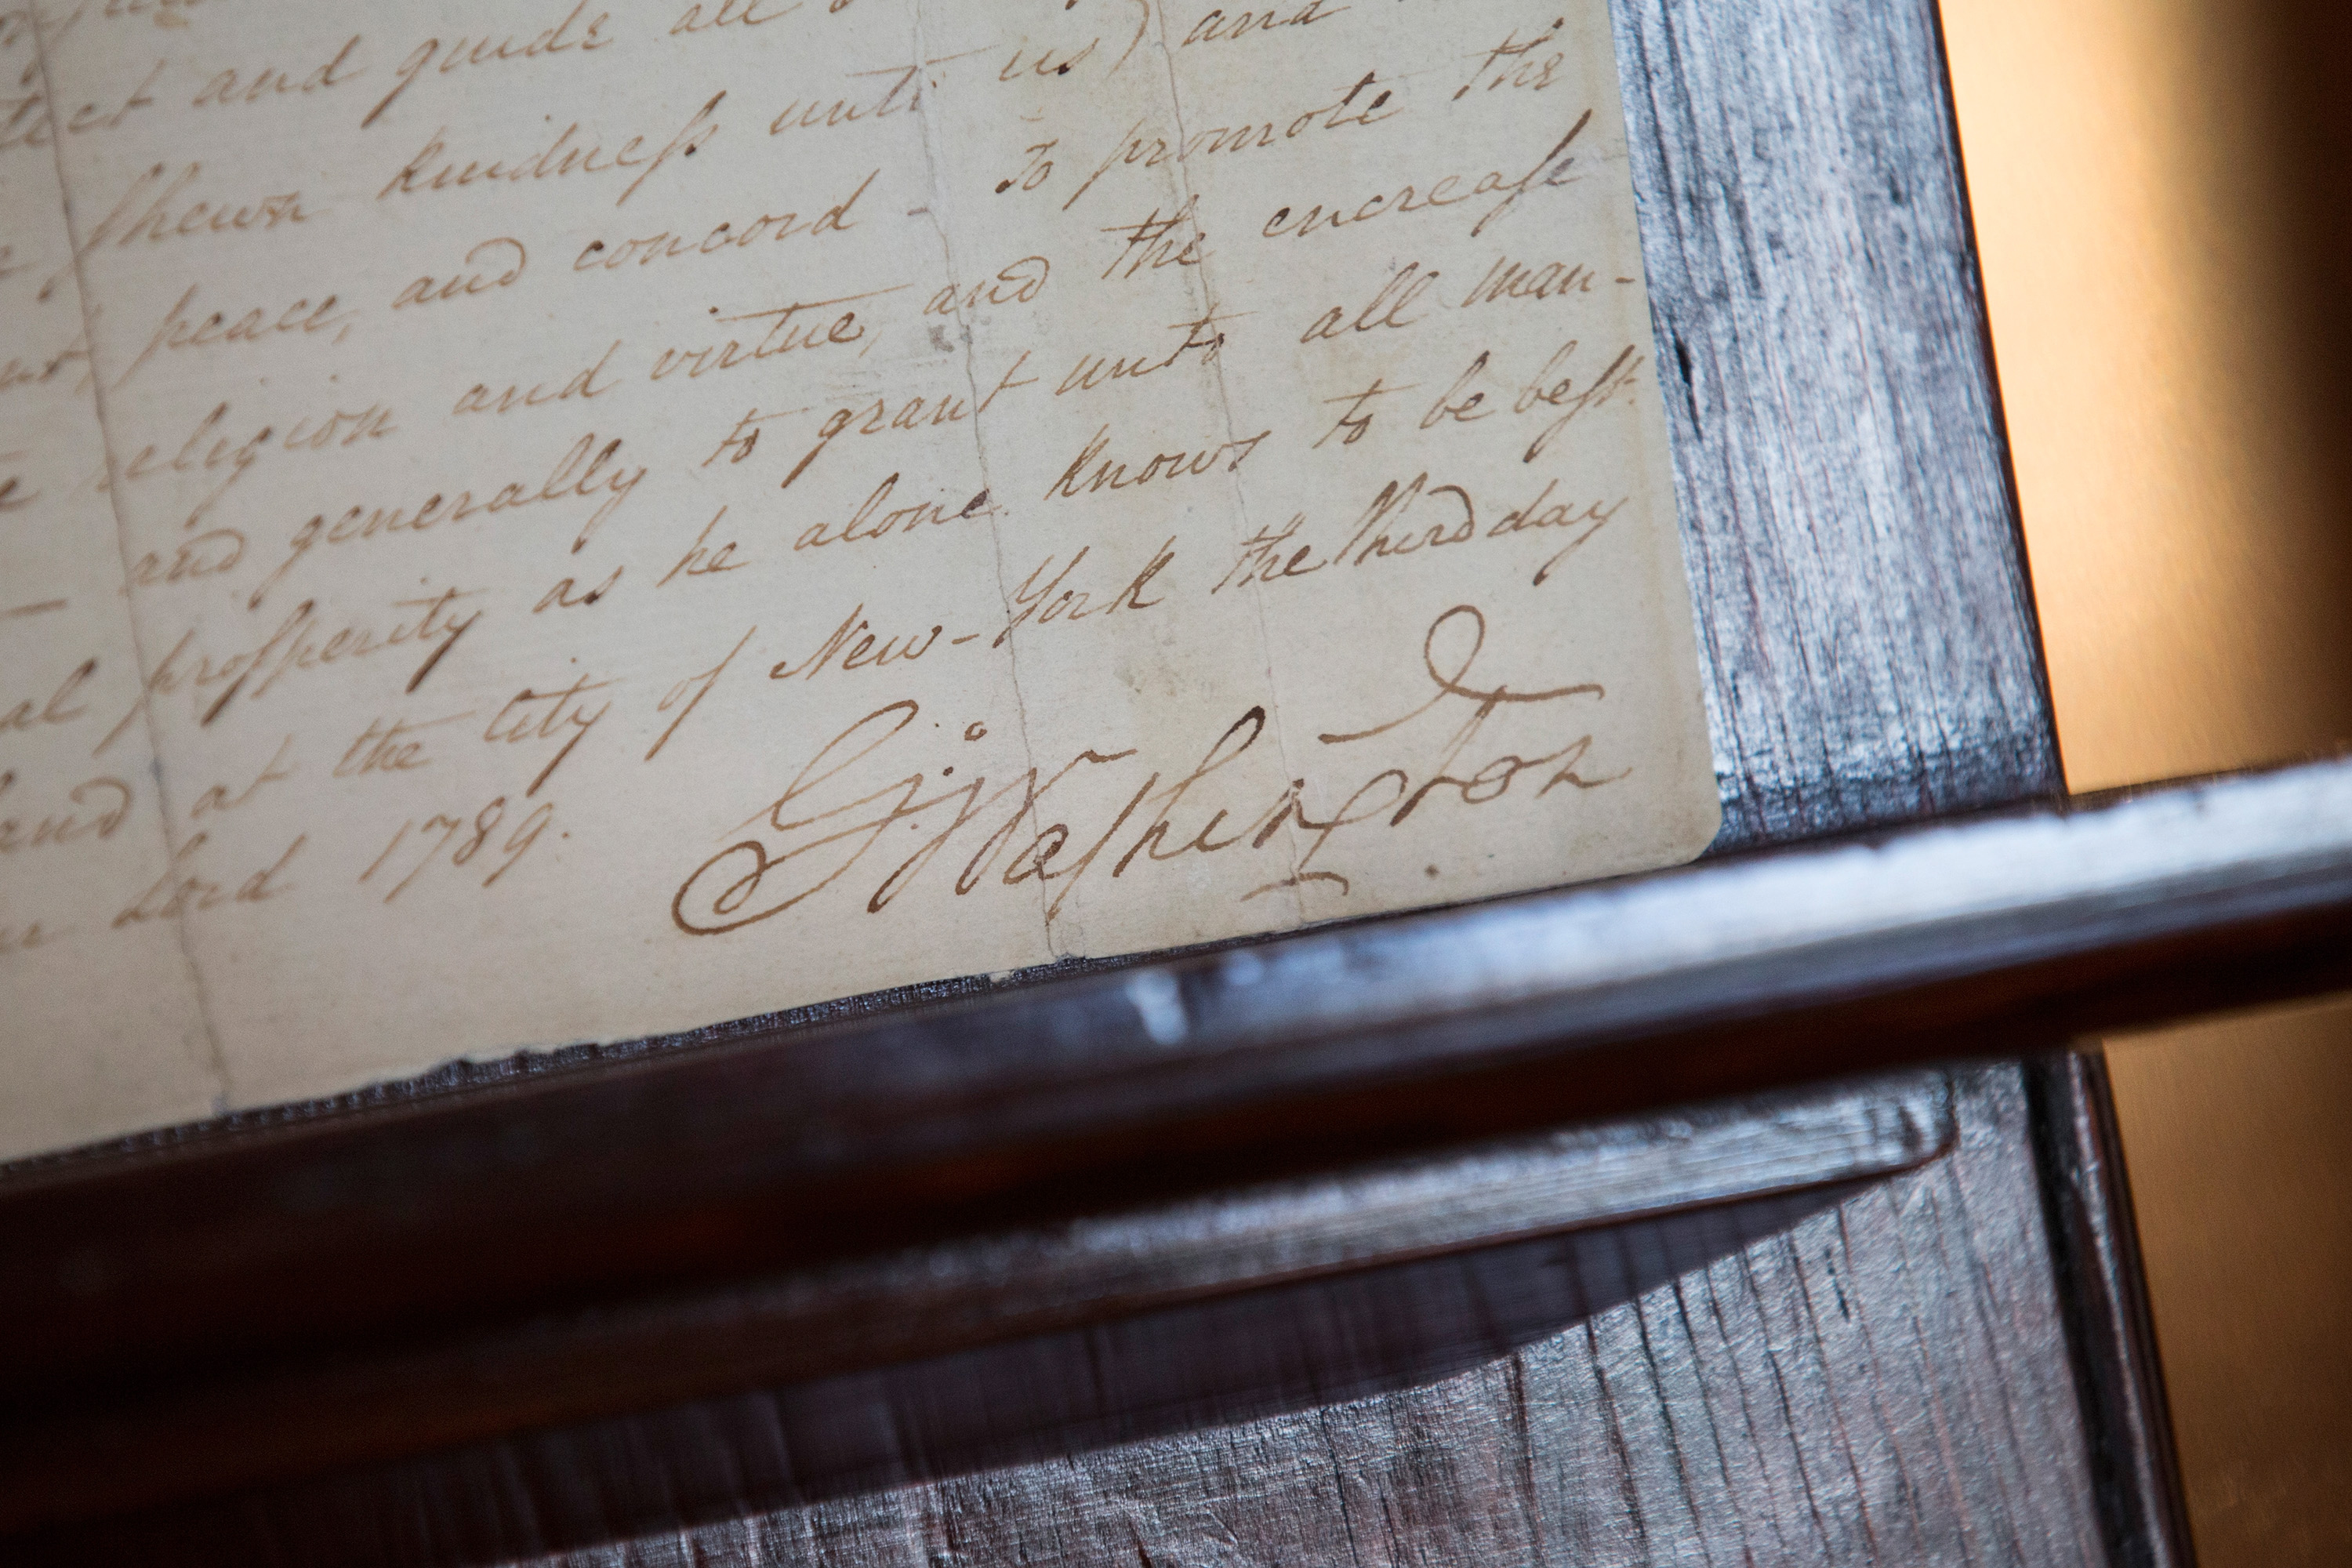 and guide all
shewn kindness unto us) and
peace, and concord - To promote the
religion and virtue, and the encrease
— and generally to grant unto all man-
al prosperity as he alone knows to be best.
and at the City of New-York the third day
Lord 1789.
G:o Washington